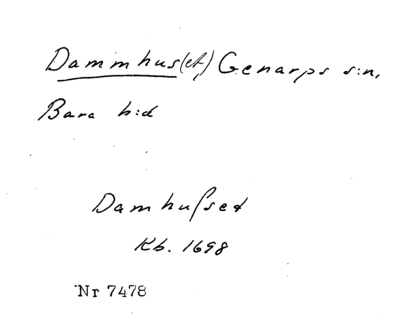 Dammhus(et,) Genarps s:n,
Bara h:d
Damhuſset
Kb. 1698
Nr 7478